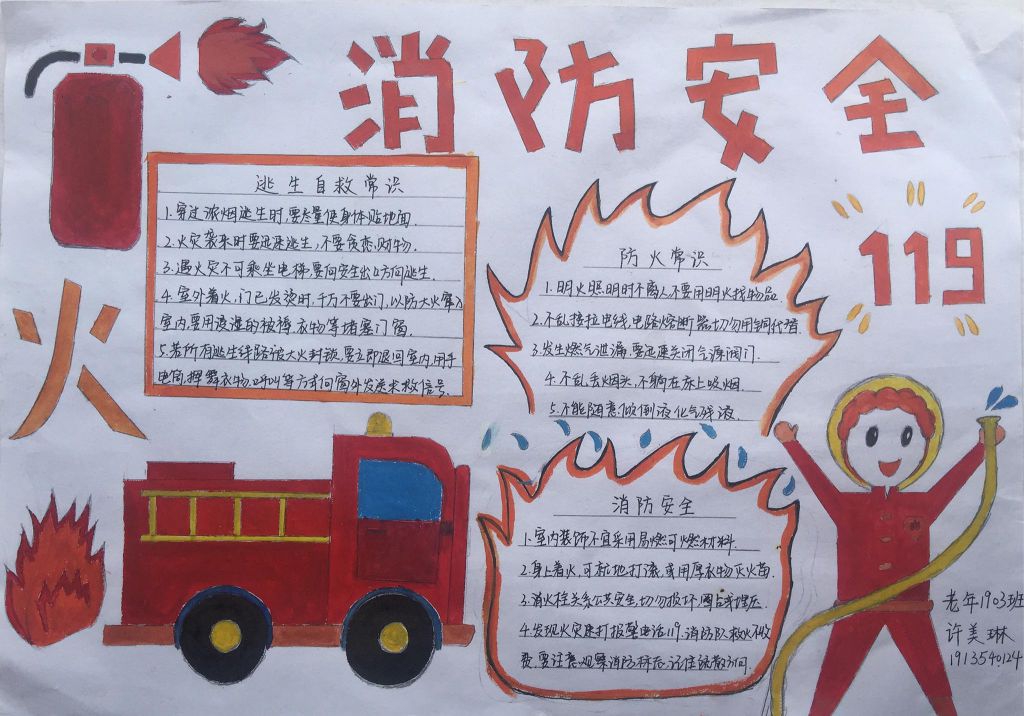 消防安全
119
火
逃生自救常识
1.穿过浓烟逃生时,要尽量使身体贴地面
2.火灾袭来时要迅速逃生,不要贪恋财物.
3.遇火灾不可乘坐电梯,要向安全出口方向逃生.
4.室外着火,门已发烫时,千万不要出门,以防大火窜入
室内,要用浸湿的被褥、衣物等堵塞门窗.
5.若所有逃生线路被大火封锁,要立即退回室内,用手
电筒,挥舞衣物、呼叫等方式向窗外发送求救信号.
防火常识
1.明火照明时不离人,不要用明火找物品
2.不乱接拉电线,电路熔断器,切勿用铜代替
3.发生燃气泄漏,要迅速关闭气源阀门.
4.不乱丢烟头,不躺在床上吸烟.
5.不能随意倾倒液化气残液
消防安全
1.室内装饰不宜采用易燃可燃材料.
2.身上着火,可就地打滚,或用厚衣物灭火苗.
3.消火栓关系公共安全,切勿损坏、圈占或埋压
4.发现火灾速打报警电话119.消防队救火不收
费.要注意观察消防标志,记住疏散方向.
老年1903班
许美琳
1913540124